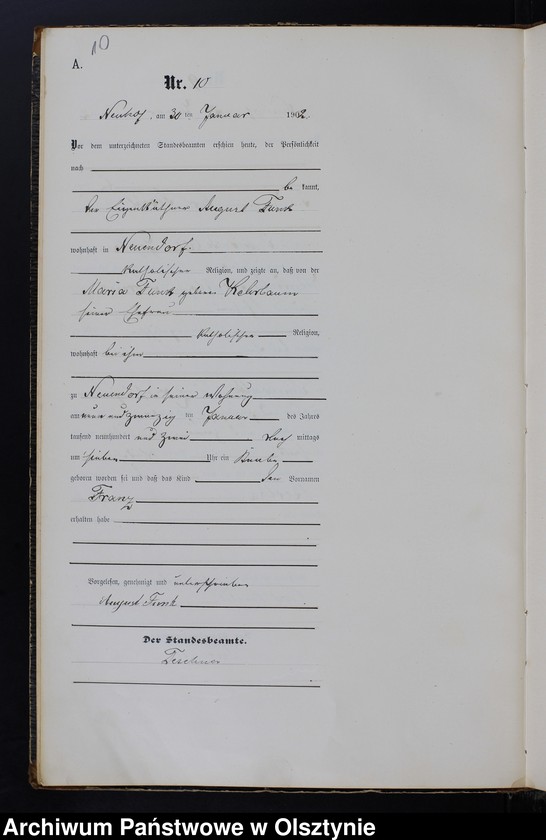 10
A.
Nr. 10
Neuhof, am 30 ten Januar 1902.
Vor dem unterzeichneten Standesbeamten erschien heute, der Persönlichkeit
nach
be kannt,
der Eigenkäthner August Funk
wohnhaft in Neuendorf
katholischer Religion, und zeigte an, daß von der
Maria Funk geborne
seiner Ehefrau
katholischer Religion,
wohnhaft bei ihm
zu Neuendorf in seiner Wohnung
am neun und zwanzig ten Januar des Jahres
tausend neunhundert und zwei Nach mittags
um sieben Uhr ein Knabe
geboren worden sei und daß das Kind den Vornamen
Franz
erhalten habe
Vorgelesen, genehmigt und unterschrieben
August Funk
Der Standesbeamte.
Teschner
Archiwum Państwowe w Olsztynie